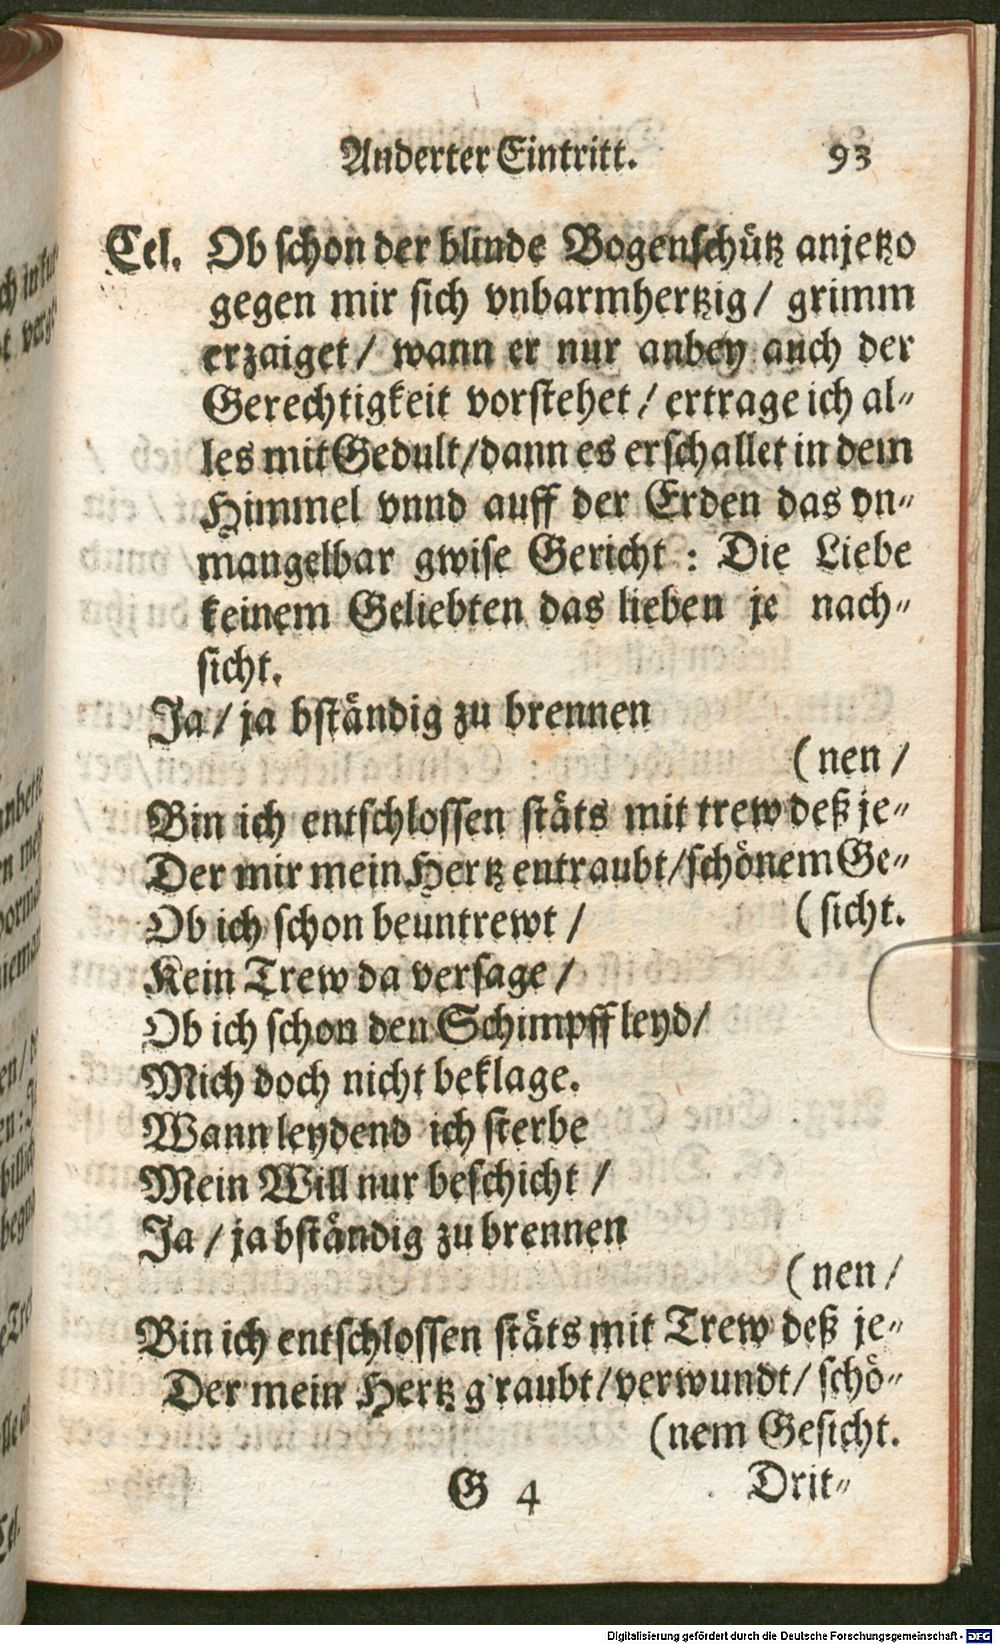 Anderter Eintritt. 93
Cel. Ob schon der blinde Bogenschütz anjetzo
gegen mir sich vnbarmhertzig / grimm
erzaiget / wann er nur anbey auch der
Gerechtigkeit vorstehet / ertrage ich al-
les mit Gedult / dann es erschallet in dem
Himmel vnnd auff der Erden das vn-
mangelbar gwise Gericht : Die Liebe
keinem Geliebten das lieben je nach-
sicht.
Ja / ja bständig zu brennen
(nen /
Bin ich entschlossen stäts mit trew deß je-
Der mir mein Hertz entraubt / schönem Ge-
Ob ich schon beuntrewt / (sicht.
Kein Trew da versage /
Ob ich schon den Schimpff leyd /
Mich doch nicht beklage.
Wann leydend ich sterbe
Mein Will nur beschicht /
Ja / ja bständig zu brennen
(nen /
Bin ich entschlossen stäts mit Trew deß je-
Der mein Hertz g'raubt / verwundt / schö-
(nem Gesicht.
G 4 Drit-
Digitalisierung gefördert durch die Deutsche Forschungsgemeinschaft - DFG